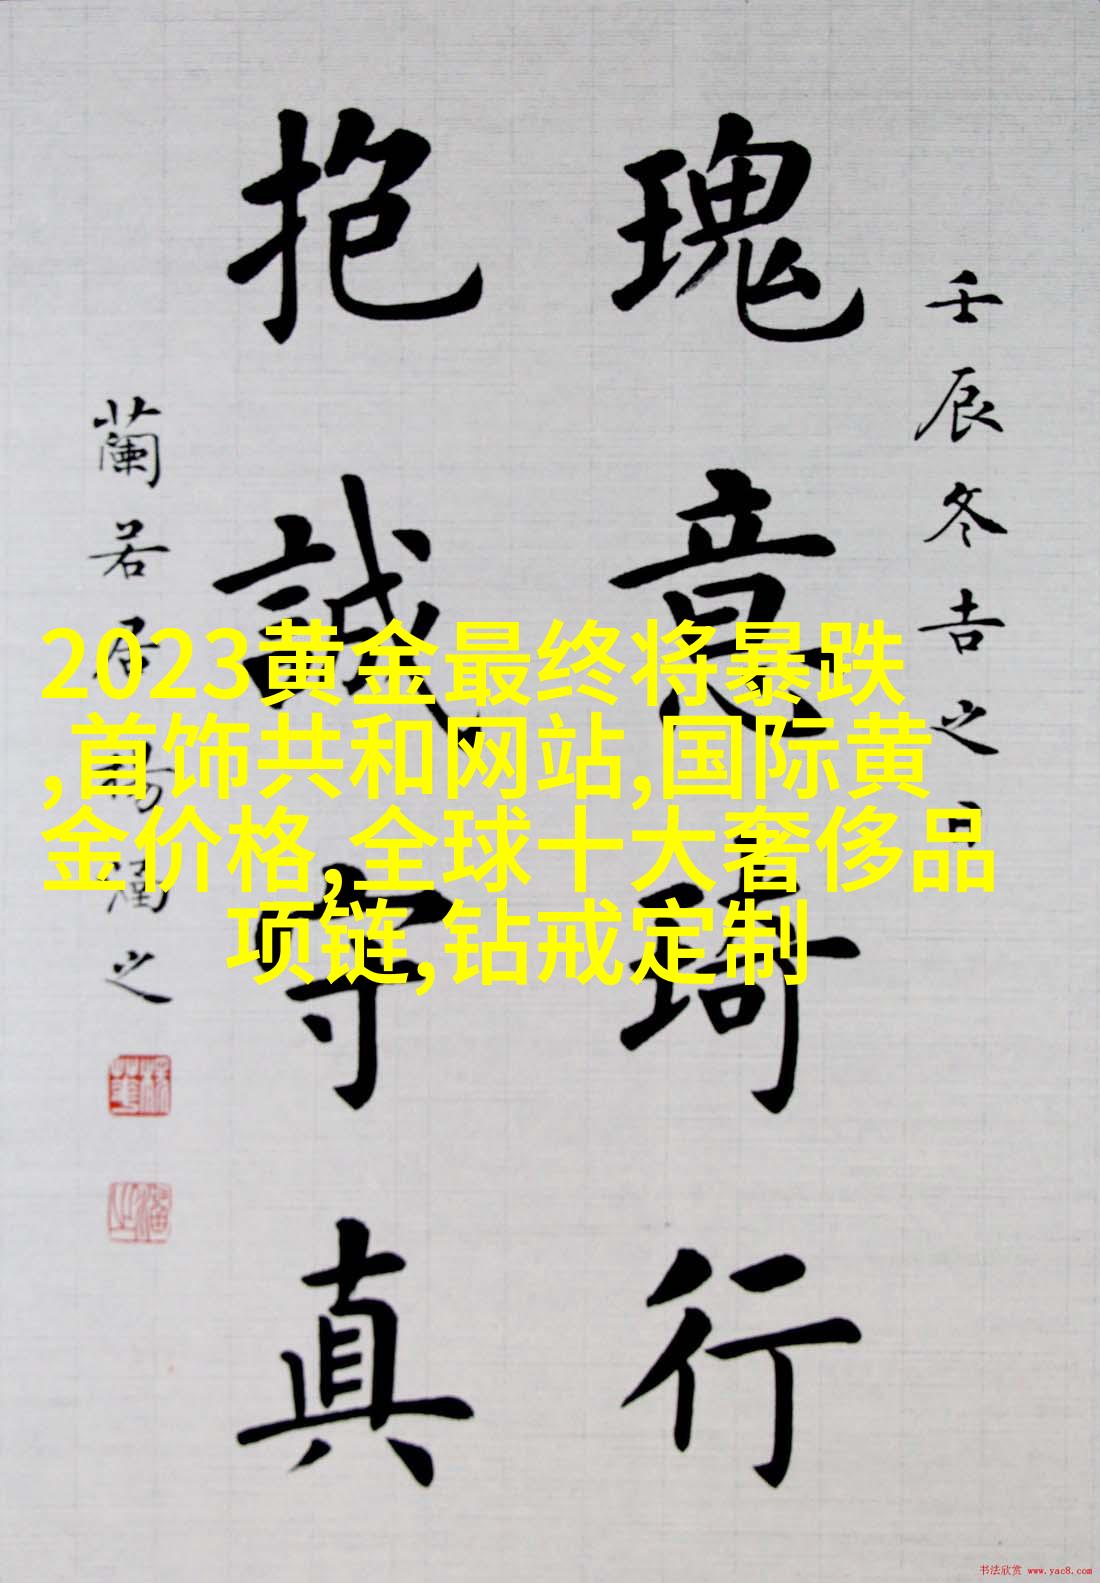 壬辰冬吉之日
瑰意琦行
抱誠守真
蘭若居
之
2023黄金最终将暴跌
,首饰共和网站,国际黄
金价格,全球十大奢侈品
项链,钻戒定制
书法欣赏 www.yac8.com